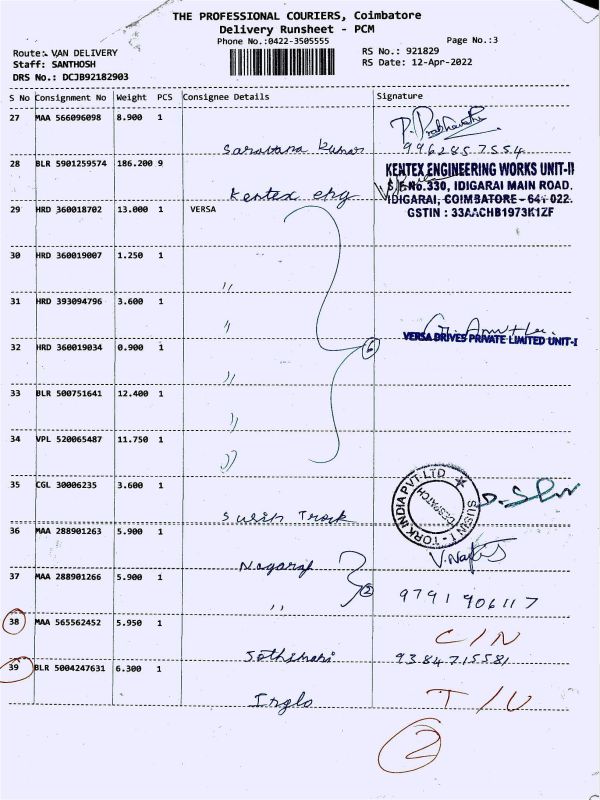 THE PROFESSIONAL COURIERS, Coimbatore
Delivery Runsheet - PCM
Phone No.:0422-3505555
Page No.:3
Route: VAN DELIVERY
RS No.: 921829
Staff: SANTHOSH
RS Date: 12-Apr-2022
DRS No.: DCJB92182903
S No Consignment No Weight PCS Consignee Details Signature
27 MAA 566096098 8.900 1
P. Prabhavathi
Saravana Kumar 9962857554
28 BLR 5901259574 186.200 9
KENTEX ENGINEERING WORKS UNIT-II
S.F.No.330, IDIGARAI MAIN ROAD.
Kentex eng IDIGARAI, COIMBATORE - 641 022.
GSTIN : 33AACHB1973K1ZF
29 HRD 360018702 13.000 1 VERSA
30 HRD 360019007 1.250 1
"
31 HRD 393094796 3.600 1
"
VERSA DRIVES PRIVATE LIMITED UNIT-I
32 HRD 360019034 0.900 1 6
"
33 BLR 500751641 12.400 1
"
34 VPL 520065487 11.750 1
"
35 CGL 30006235 3.600 1
SUSIN T - TORK INDIA PVT-LTD
DESPATCH
36 MAA 288901263 5.900 1
Nagaraj
37 MAA 288901266 5.900 1 2
" 9791906117
38 MAA 565562452 5.950 1
C/N
9384715581
39 BLR 5004247631 6.300 1
T/U
Inglo
2